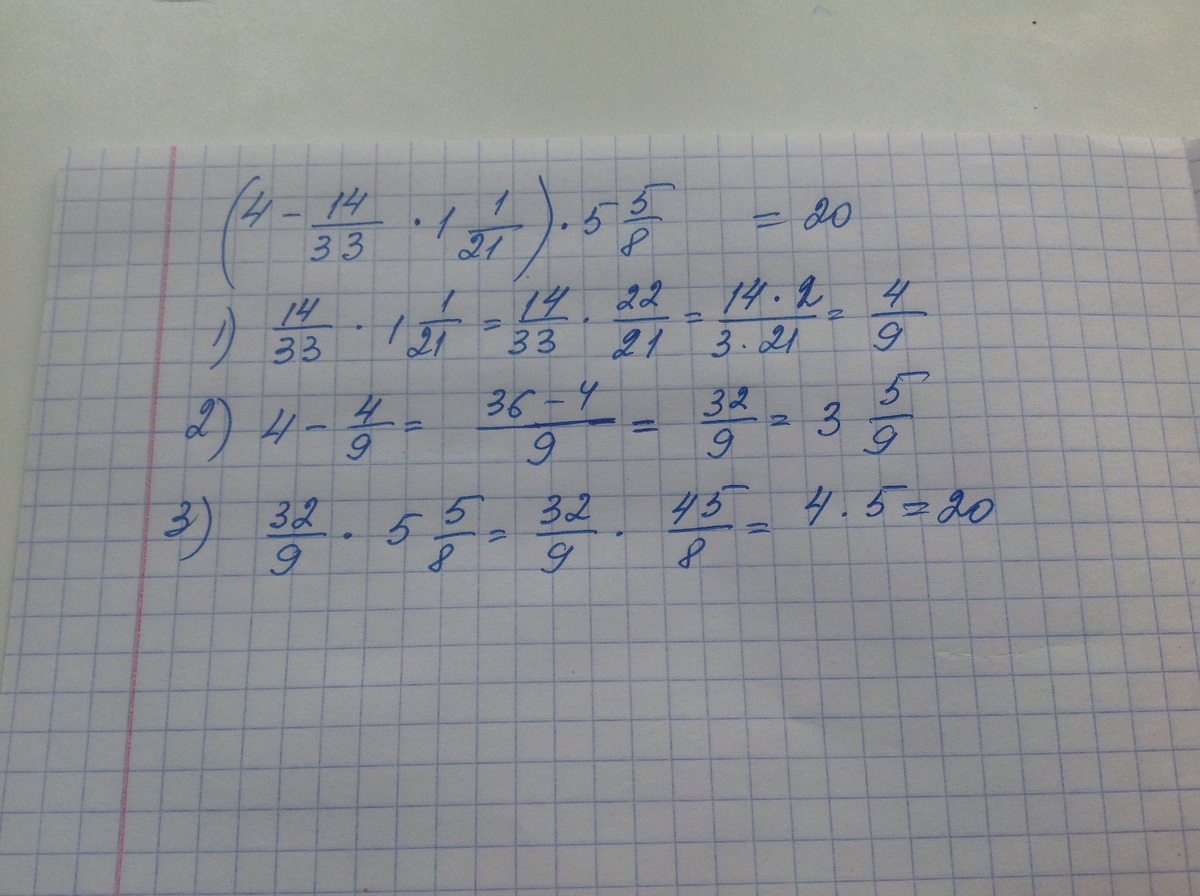 (4 - 14/33 · 1 1/21) · 5 5/8 = 20
1) 14/33 · 1 1/21 = 14/33 · 22/21 = 14·2/3·21 = 4/9
2) 4 - 4/9 = 36-4/9 = 32/9 = 3 5/9
3) 32/9 · 5 5/8 = 32/9 · 45/8 = 4·5 = 20